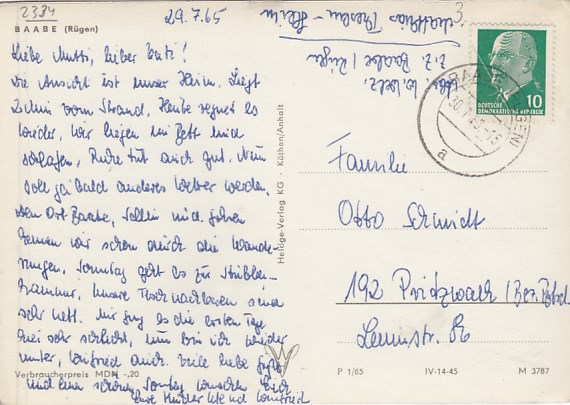 2384
BAABE (Rügen)
29.7.65
Liebe Mutti, lieber Vati!
Die Ansicht ist unser Heim. Liegt
2 Min vom Strand. Heute regnet es
wieder, wir liegen im Bett und
schlafen, Ruhe tut auch gut. Nun
soll ja bald anderes Wetter werden.
Den Ort Baabe, Sellin und
kennen wir schon durch die Wande-
rungen. Sonntag geht es zur Stubben-
kammer, unsere Tischnachbaren sind
sehr nett. Mir ging es die ersten Tage
sehr schlecht, nun bin ich wieder
unter, Winfried auch. Viele liebe Grüße
und einen schönen Sonntag wünschen Euch
Eure und Winfried
Verbraucherpreis MDN -,20
Heldge-Verlag KG · Köthen/Anhalt
z. Z. Baabe / Rügen
3
DEUTSCHE
DEMOKRATISCHE REPUBLIK
10
BAABE
a
Familie
Otto Schmidt
192 Pritzwalk / Bez. Potsd.
Leninstr. 86
P 1/65 IV-14-45 M 3787